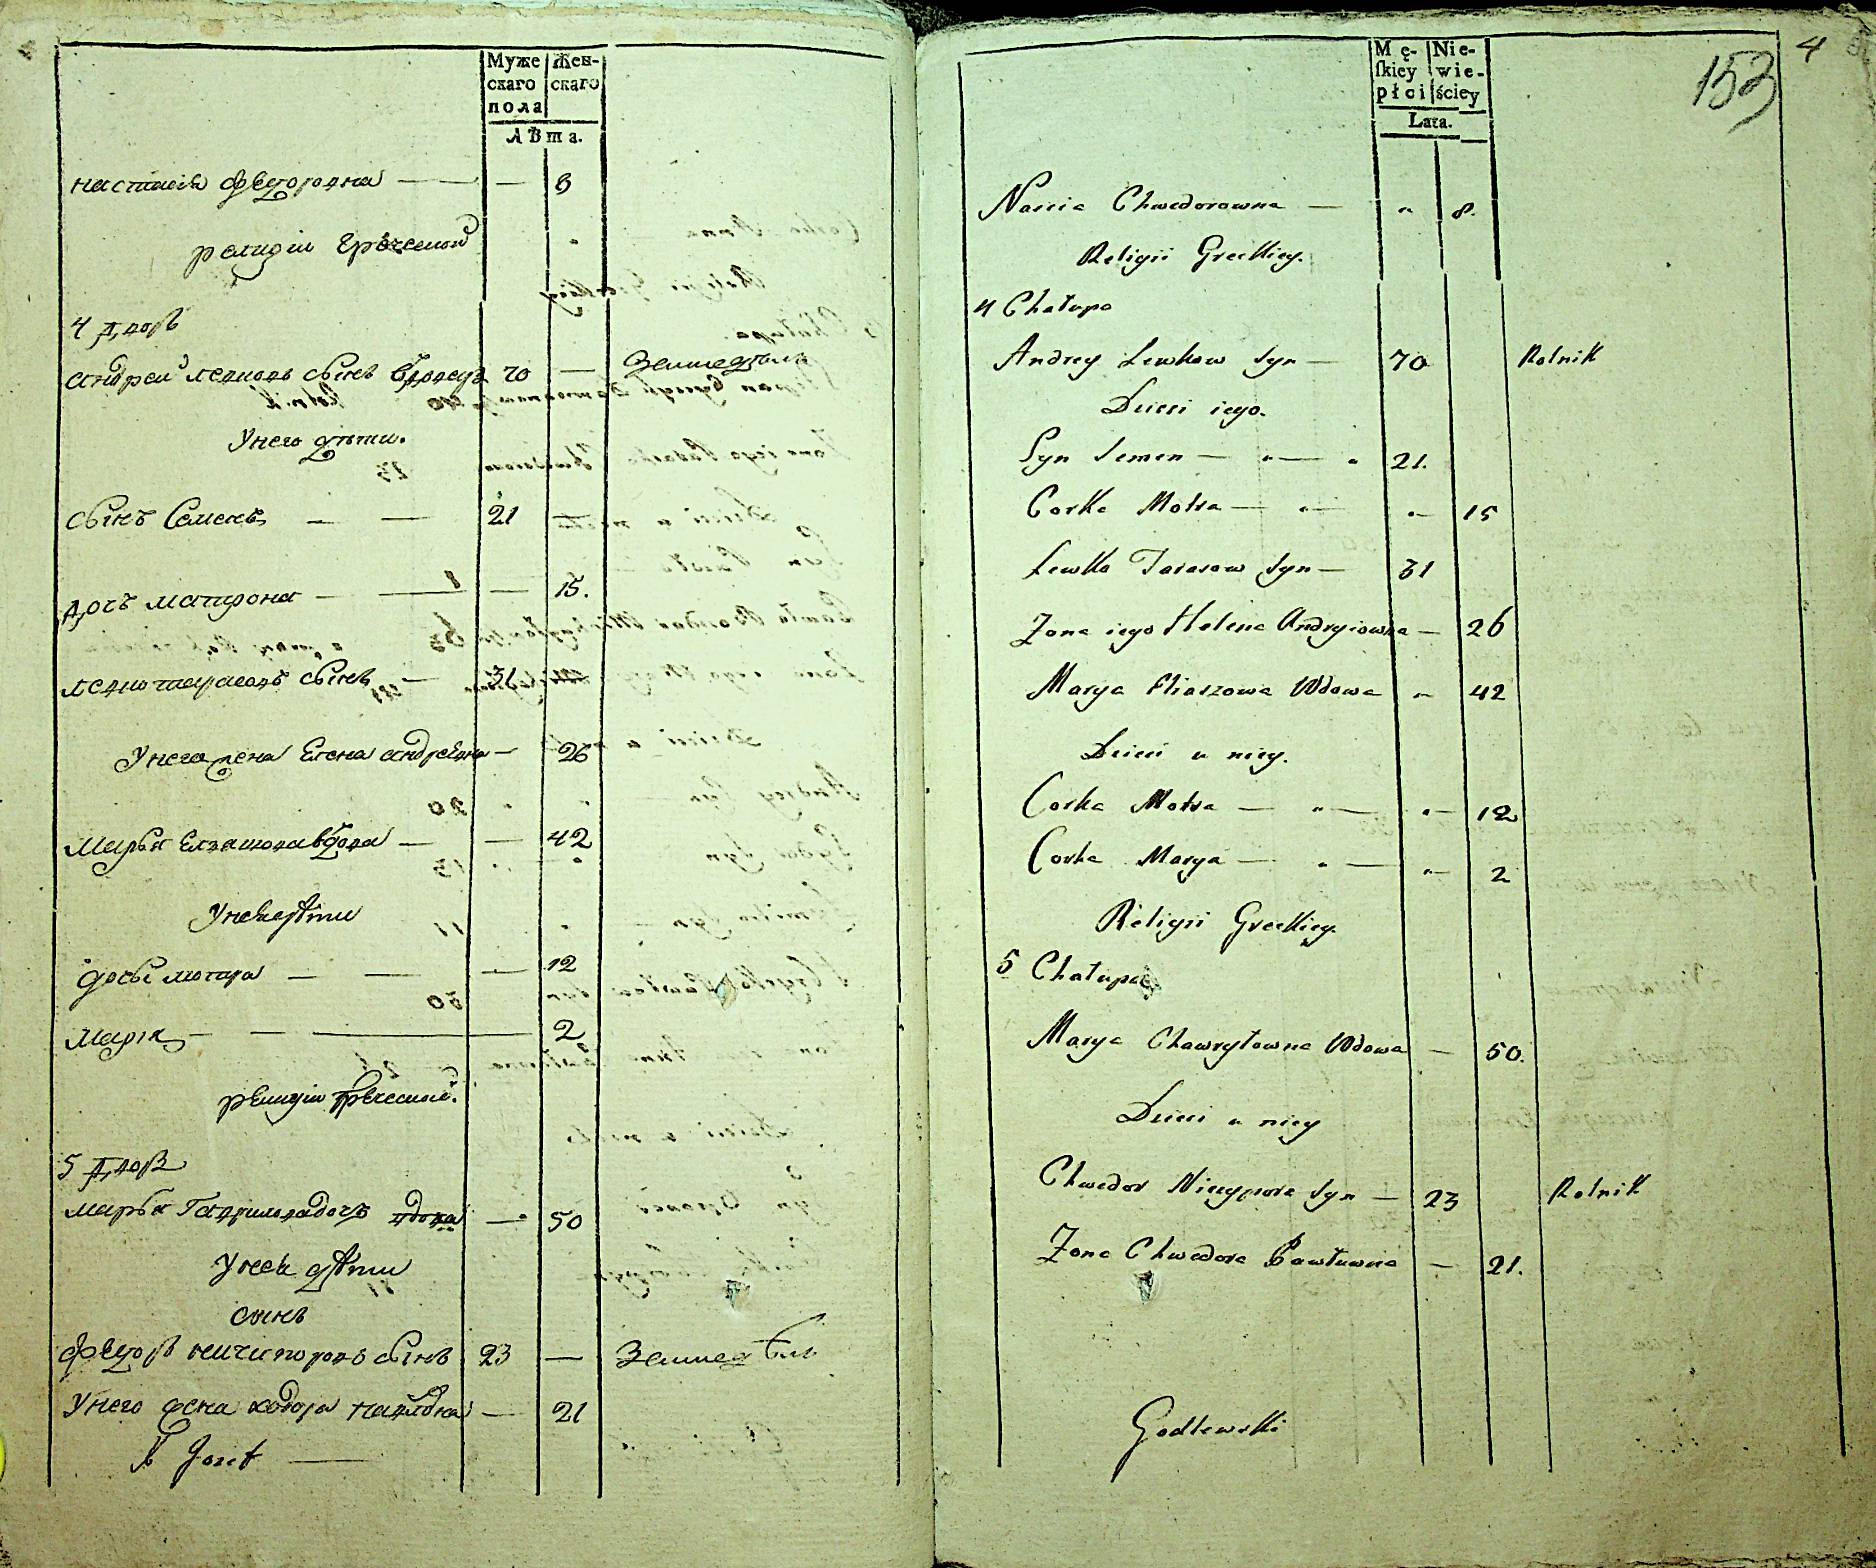 Муже
скаго
пола
Жен-
скаго
Лѣта.
настасія федоровна — — 8
религіи греческой
4 дворъ
андреи левковъ сынъ вдовецъ 70 — Земледѣлъ
У него дѣти.
сынъ Семенъ — — 21 —
дочъ матрона — — — 15.
левко тарасовъ сынъ — 31
У него жена Елена андревна — 26
марья Елиашова вдова — — 42
У нея дѣти
дочь мотра — — — 12
марія — — — 2
религіи греческой.
5 дворъ
марья Гаврилова дочъ вдова — 50
У нея дѣти
сынъ
федоръ ничипоровъ сынъ 23 — Земледѣлъ
У него жена хведора павловна — 21
Jozef —
4
153
Mę-
skiey
płci
Nie-
wie-
ściey
Lata.
Nascia Chwedorowna — " 8.
Religii Greckiey.
4 Chałupa
Andrey Lewkow Syn — 70 Rolnik
Dzieci iego.
Syn Semen — " — " 21.
Corka Motra — " — " — 15
Lewko Tarasow Syn — 31
Zona iego Helena Andryiowna — 26
Marya Eliaszowa Wdowa " — 42
Dzieci u niey.
Corka Motra — " — " — 12
Corka Marya — " — " — 2
Religii Greckiey.
5 Chałupa
Marya Chawryłowna Wdowa — 50.
Dzieci u niey
Chwedor Niczypora Syn — 23 Rolnik
Zona Chwedora Pawłowna — 21.
Godlewski